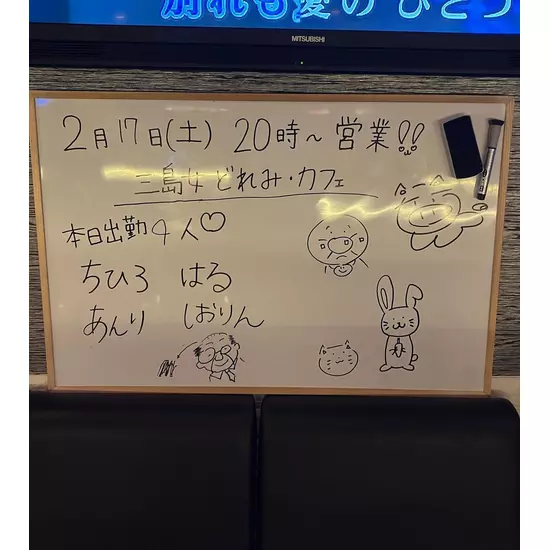 別れも愛のひとつ
MITSUBISHI
2月17日(土) 20時~営業!!
三島4どれみ・カフェ
本日出勤4人♡
ちひろ はる
あんり しおりん